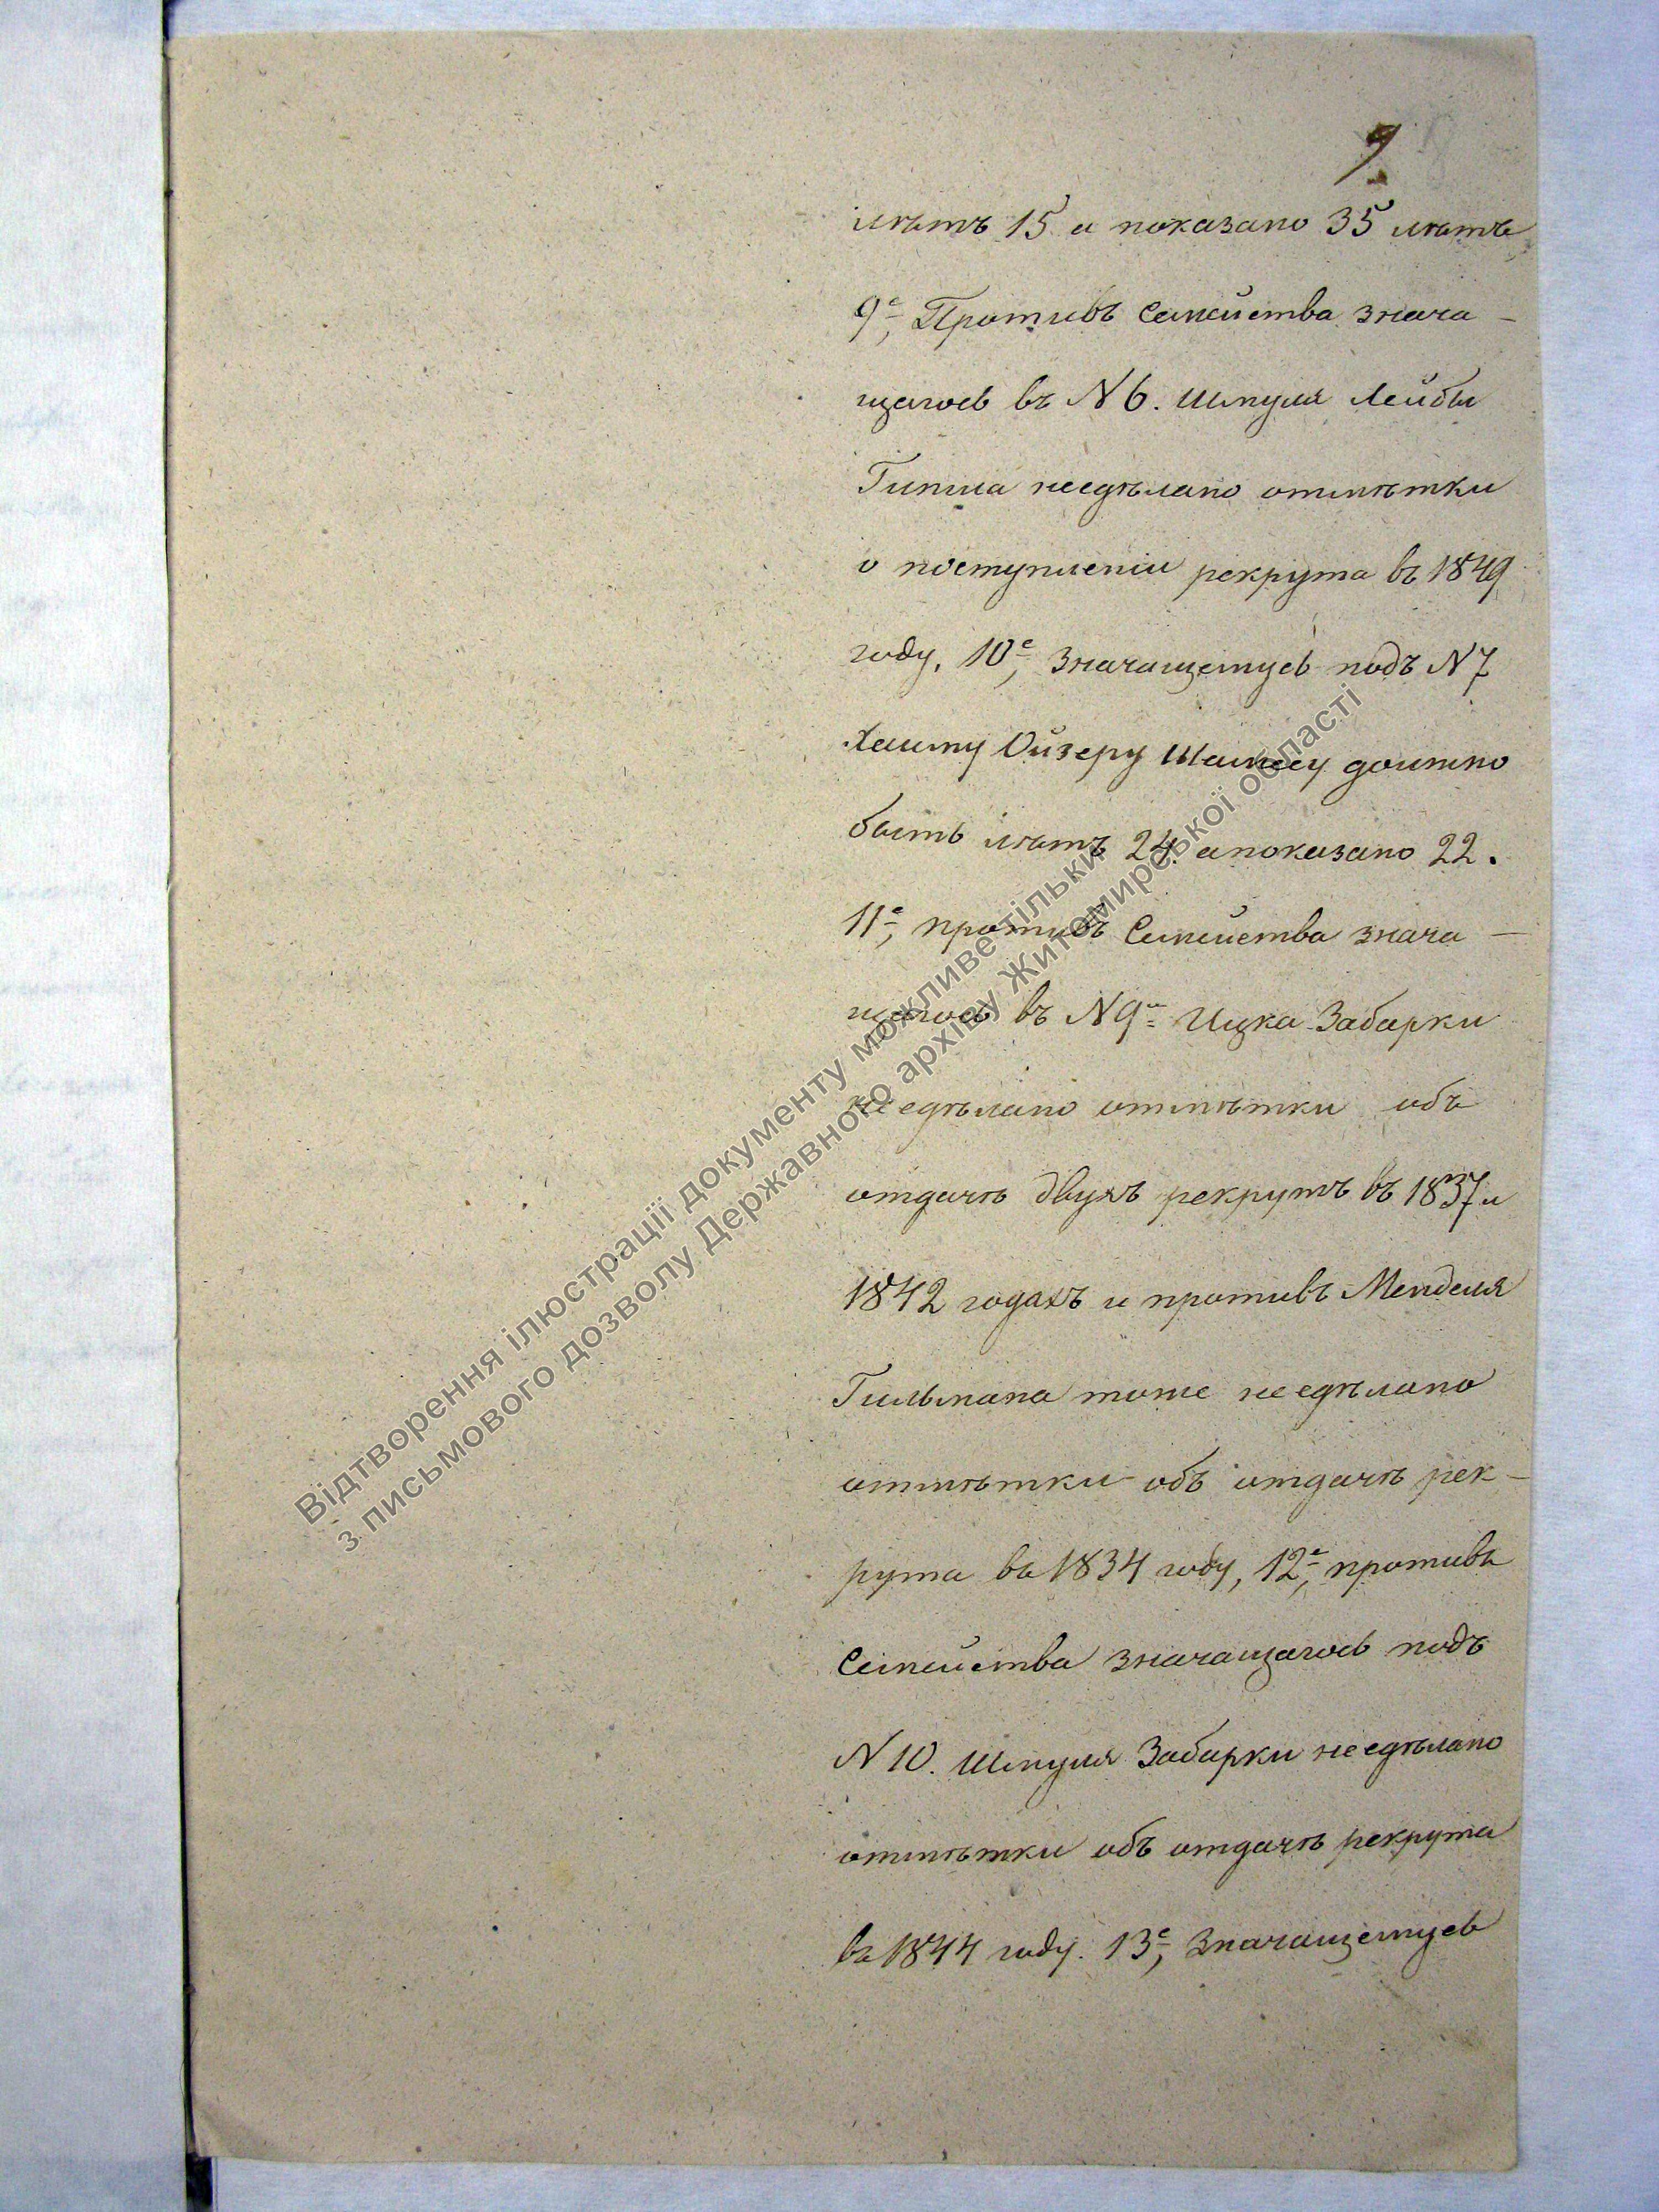 9
лѣтъ 15 а показано 35 лѣтъ
9е, Противъ Семейства знача-
щагось въ N 6. Шмуля Лейбы
несдѣлано отмѣтки
о поступленіи рекрута въ 1849
году, 10е, Значащемуся подъ N 7
Хаиму Ойзеру должно
быть лѣтъ 24 апоказано 22.
11е, противъ Семейства знача-
щагось въ N 9м Ицка Забарки
несдѣлано отмѣтки объ
отдачѣ двухъ рекрутъ въ 1837 и
1842 годахъ и противъ Менделя
Гильмана тоже несдѣлано
отмѣтки объ отдачѣ рек-
рута въ 1834 году, 12е, противъ
Семейства значащагось подъ
N 10. Шмуля Забарки несдѣлано
отмѣтки объ отдачѣ рекрута
въ 1844 году. 13е, Значащемусь
Відтворення ілюстрації документу можливе тільки
з письмового дозволу Державного архіву Житомирської області